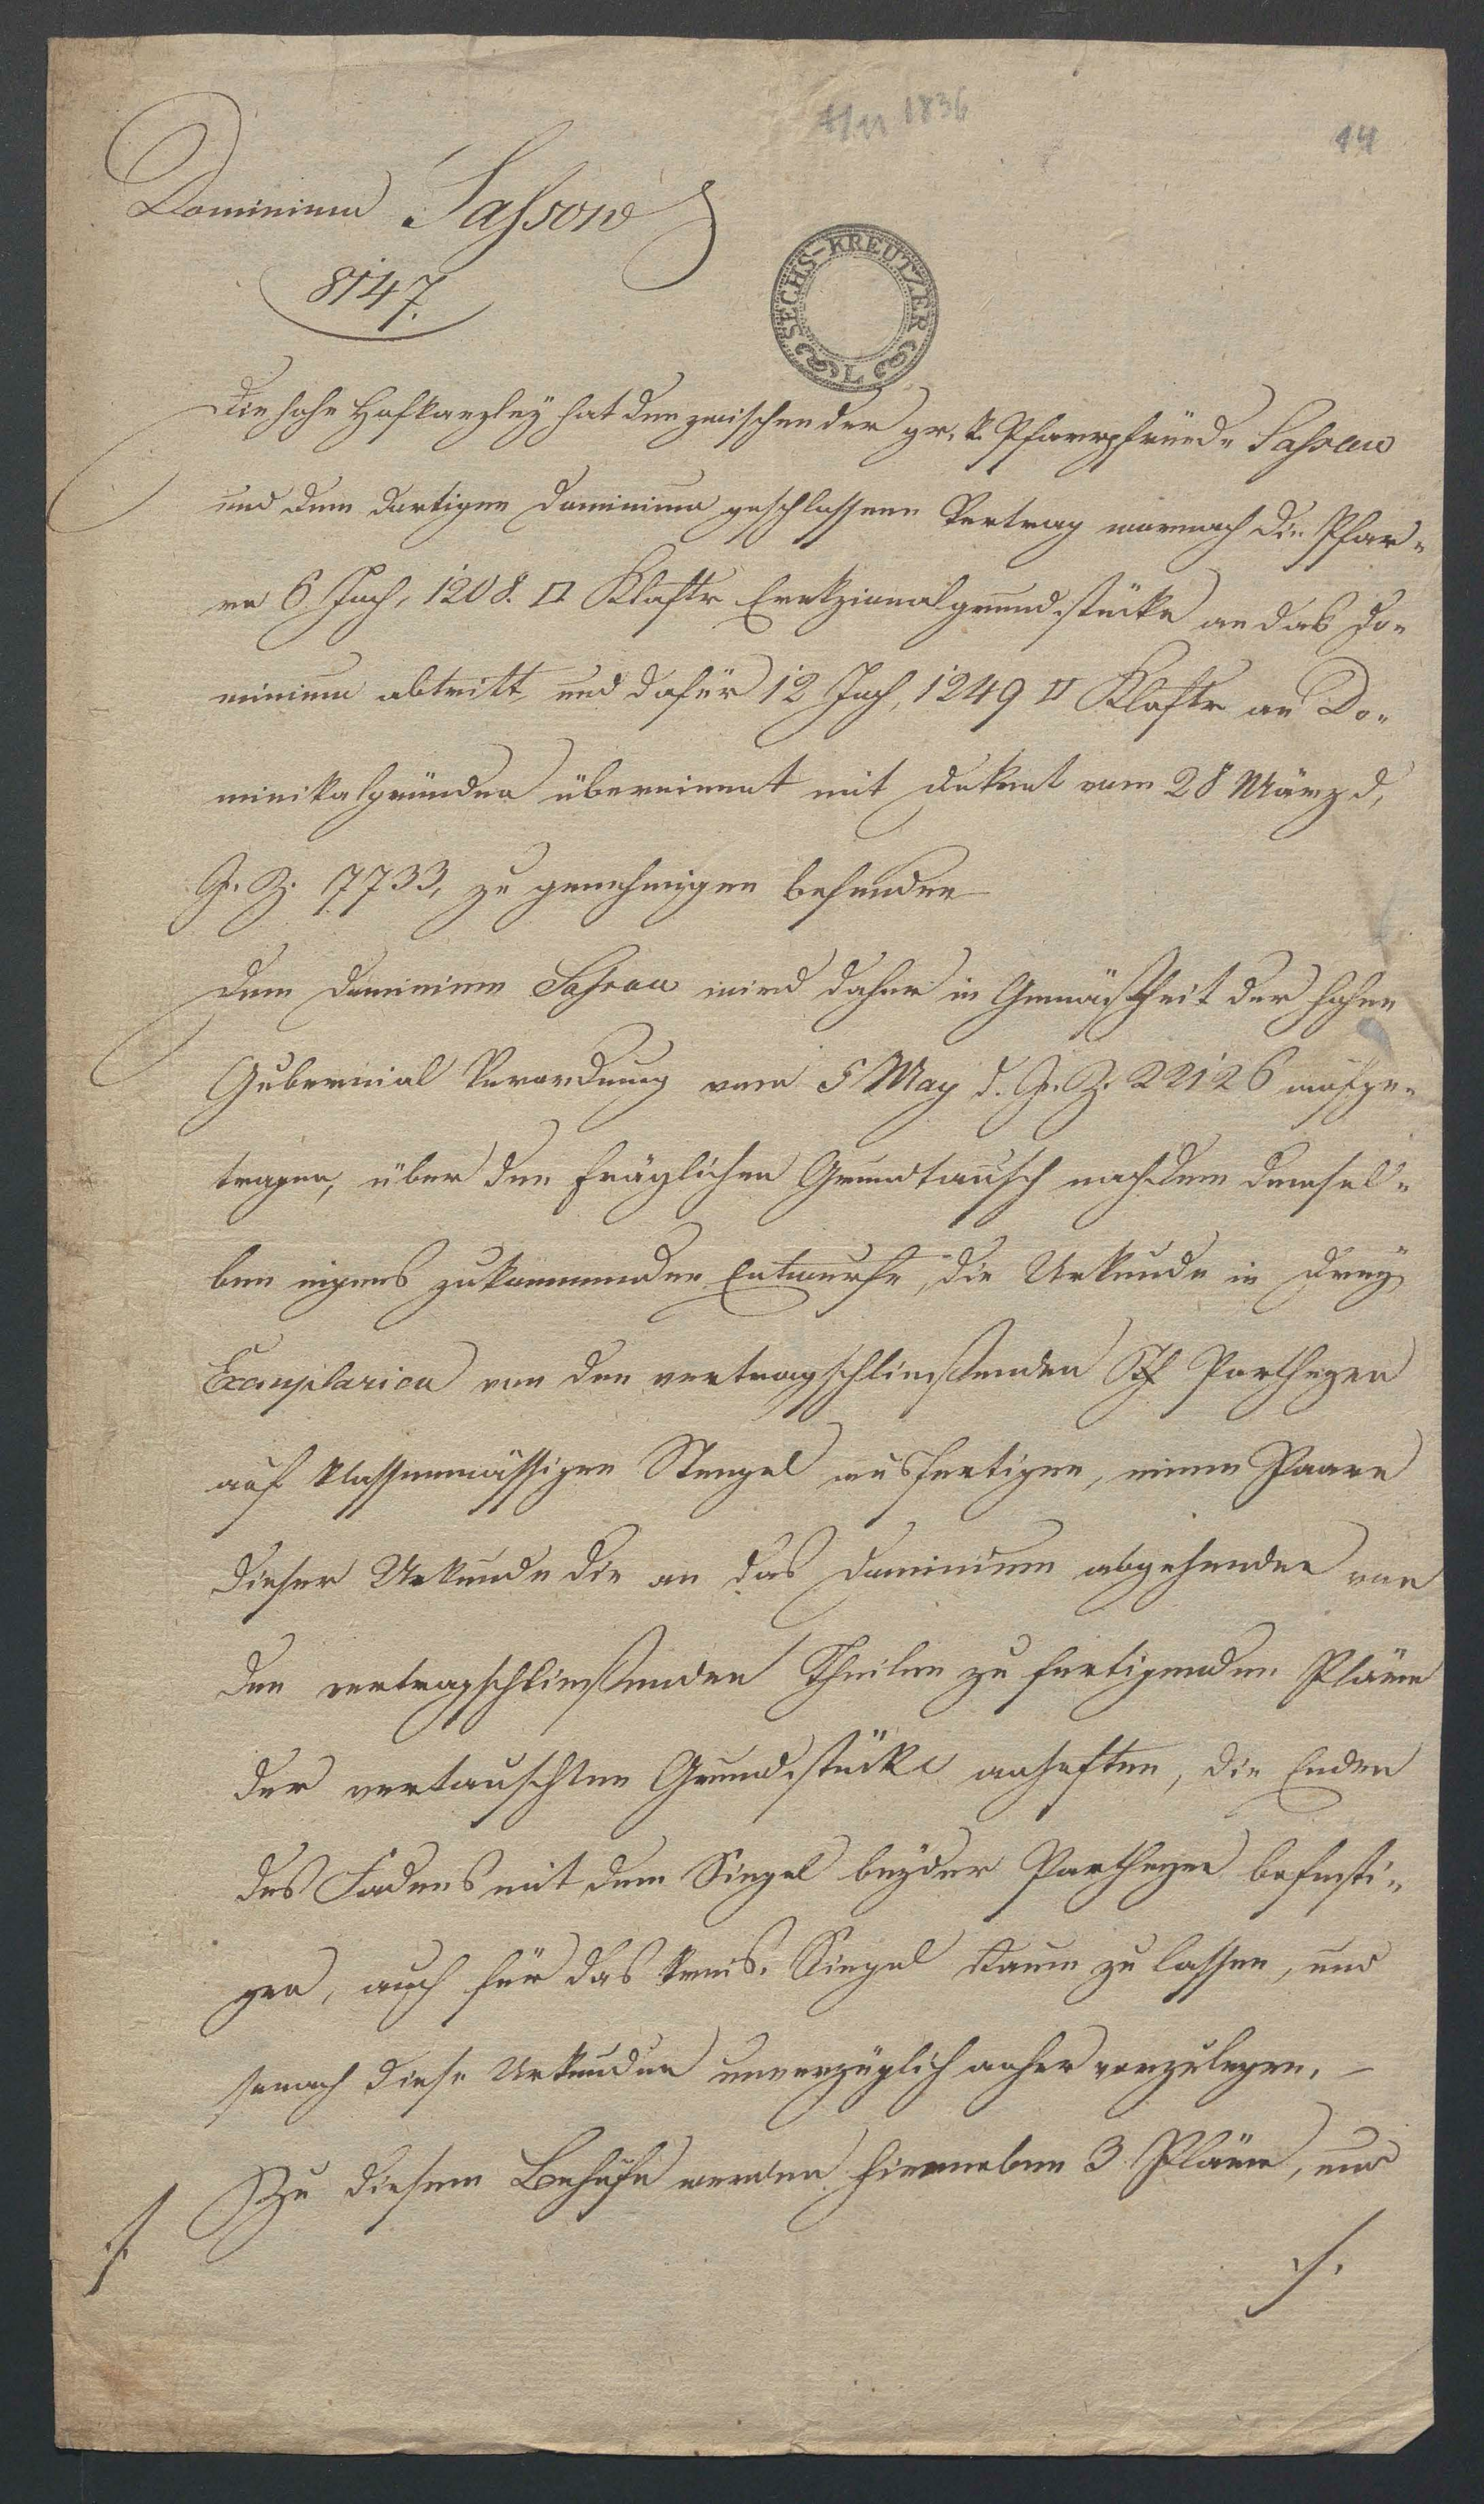 4/11 1836
14
Dominium Sassow
8147.
SECHS-KREUTZER
L
Die hohe Hofkanzley hat den zwischen der gr. k. Pfarrpfründe Sassow
und dem dortigen Dominium geschlossenen Vertrag wornach die Pfar-
re 6 Joch, 1208. □ Klaftr Erekzionalgrundstücke an das Do-
minium abtritt und dafür 12 Joch, 1249 □ Klaftr an Do-
minikalgründen übernimmt mit Dekret vom 28 März d.
J. Z. 7733, zu genehmigen befunden
Dem Dominium Sassow wird daher in Gemäßheit der hohen
Gubernial Verordnung vom 5 May d. J. Z. 22126 aufge-
tragen, über den fräglichen Grundtausch nach dem demsel-
ben eigens zukommenden Entwurfe, die Urkunde in drey
Exemplarien von den vertragschließenden Partheyen
auf klassenmässigen Stempel ausfertigen, einem Paare
dieser Urkunde die an das Dominium abgehenden von
den vertragschließenden Theilen zu fertigenden Pläne
der vertauschten Grundstücke anheften, die Enden
des Fadens mit dem Siegel beyder Partheyen befesti-
gen, auch für das Kreis-Siegel Raum zu lassen, und
sonach diese Urkunden unverzüglich anher vorzulegen. –
Zu diesem Behufe werden hierneben 3 Pläne, und
./.
./.